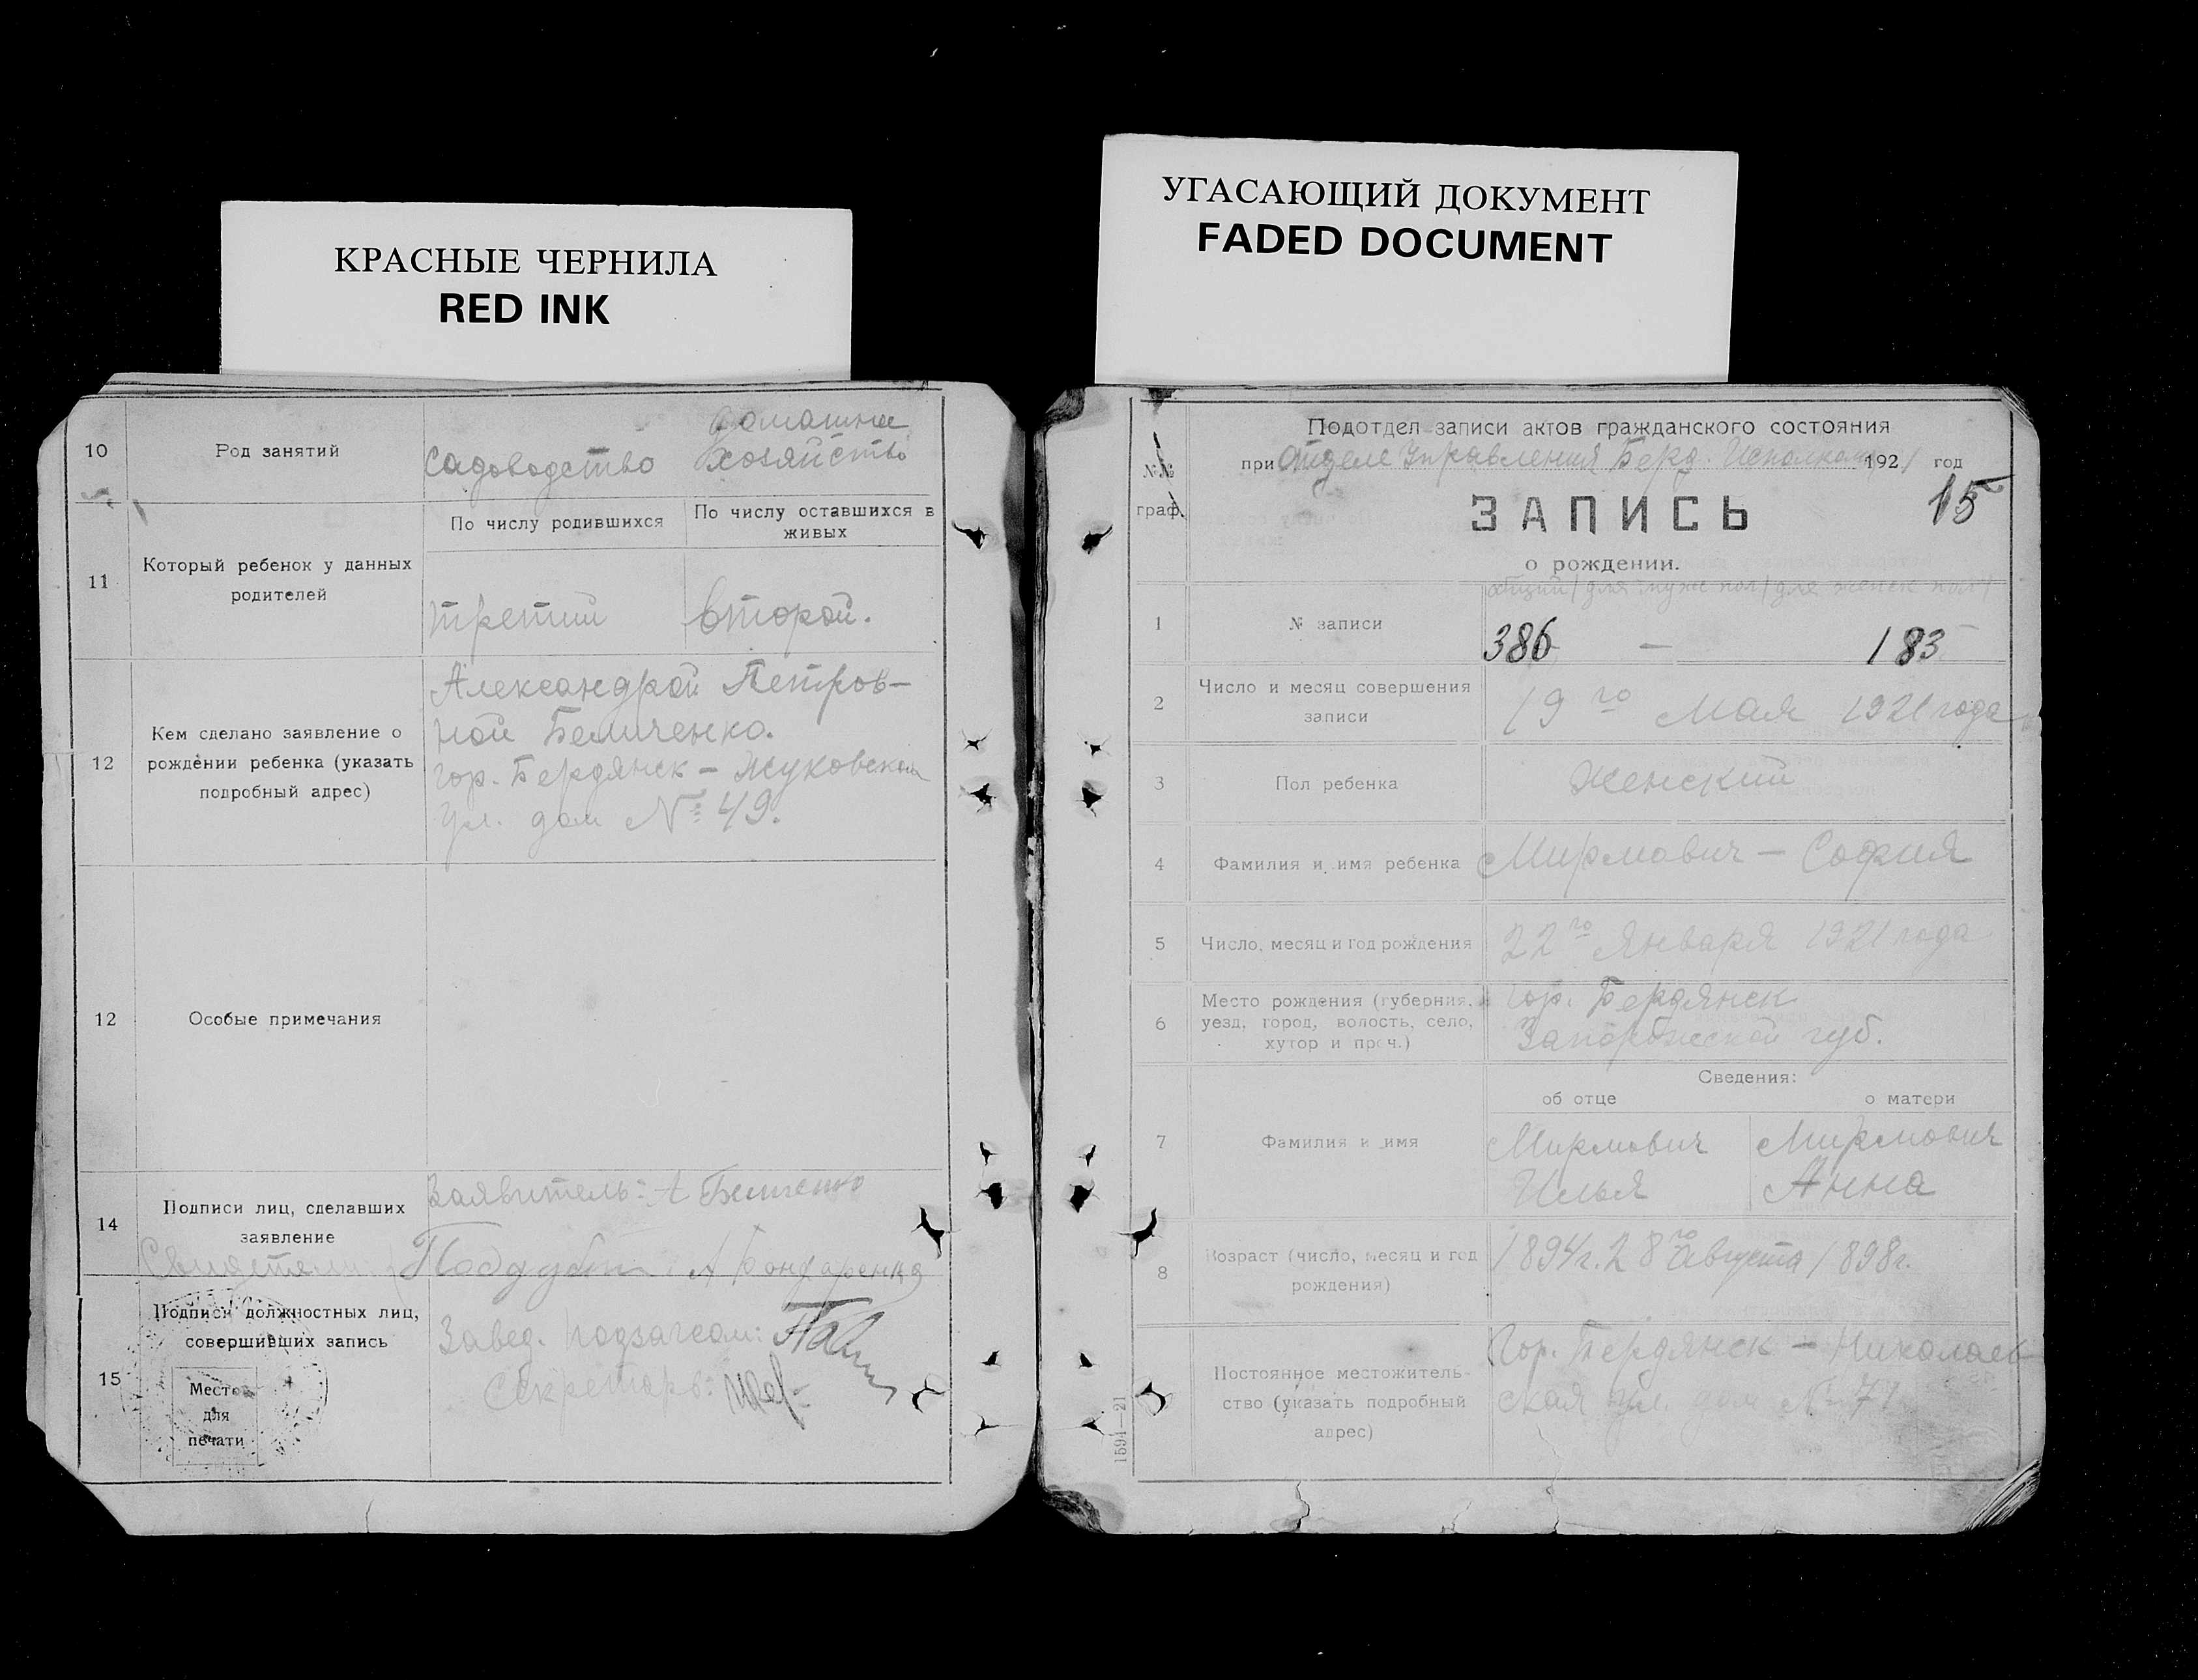 КРАСНЫЕ ЧЕРНИЛА
RED INK
УГАСАЮЩИЙ ДОКУМЕНТ
FADED DOCUMENT
10
Род занятий
садоводство
домашнее
хозяйство
11
Который ребенок у данных
родителей
По числу родившихся
По числу оставшихся в
живых
третий
второй.
12
Кем сделано заявление о
рождении ребенка (указать
подробный адрес)
Александрой Петров-
ной Беличенко.
гор. Бердянск - Жуковская
ул. дом № 49.
12
Особые примечания
14
Подписи лиц, сделавших
заявление
Заявитель: А Беличенко
Свидетели: А Бондаренко
15
Подписи должностных лиц,
совершивших запись
Место
для
печати
Завед. подзагсом:
Секретарь:
Подотдел записи актов гражданского состояния
при Отделе Управления Берд. Исполкома 1921 год
№№
граф.
15
ЗАПИСЬ
о рождении.
общий / для муж пол / для женск пол /
1
№ записи
386 — 183
2
Число и месяц совершения
записи
19го Мая 1921 года
3
Пол ребенка
Женский
4
Фамилия и имя ребенка
Мирмович - София
5
Число, месяц и год рождения
22го Января 1921 года
6
Место рождения (губерния,
уезд, город, волость, село,
хутор и проч.)
гор. Бердянск
Запорожской губ.
Сведения:
об отце
о матери
7
Фамилия и имя
Мирмович
Илья
Мирмович
Анна
8
Возраст (число, месяц и год
рождения)
1894г. 28го Августа 1898г.
Постоянное местожитель-
ство (указать подробный
адрес)
Гор. Бердянск - Николаев-
ская ул. дом № 71
1594—21